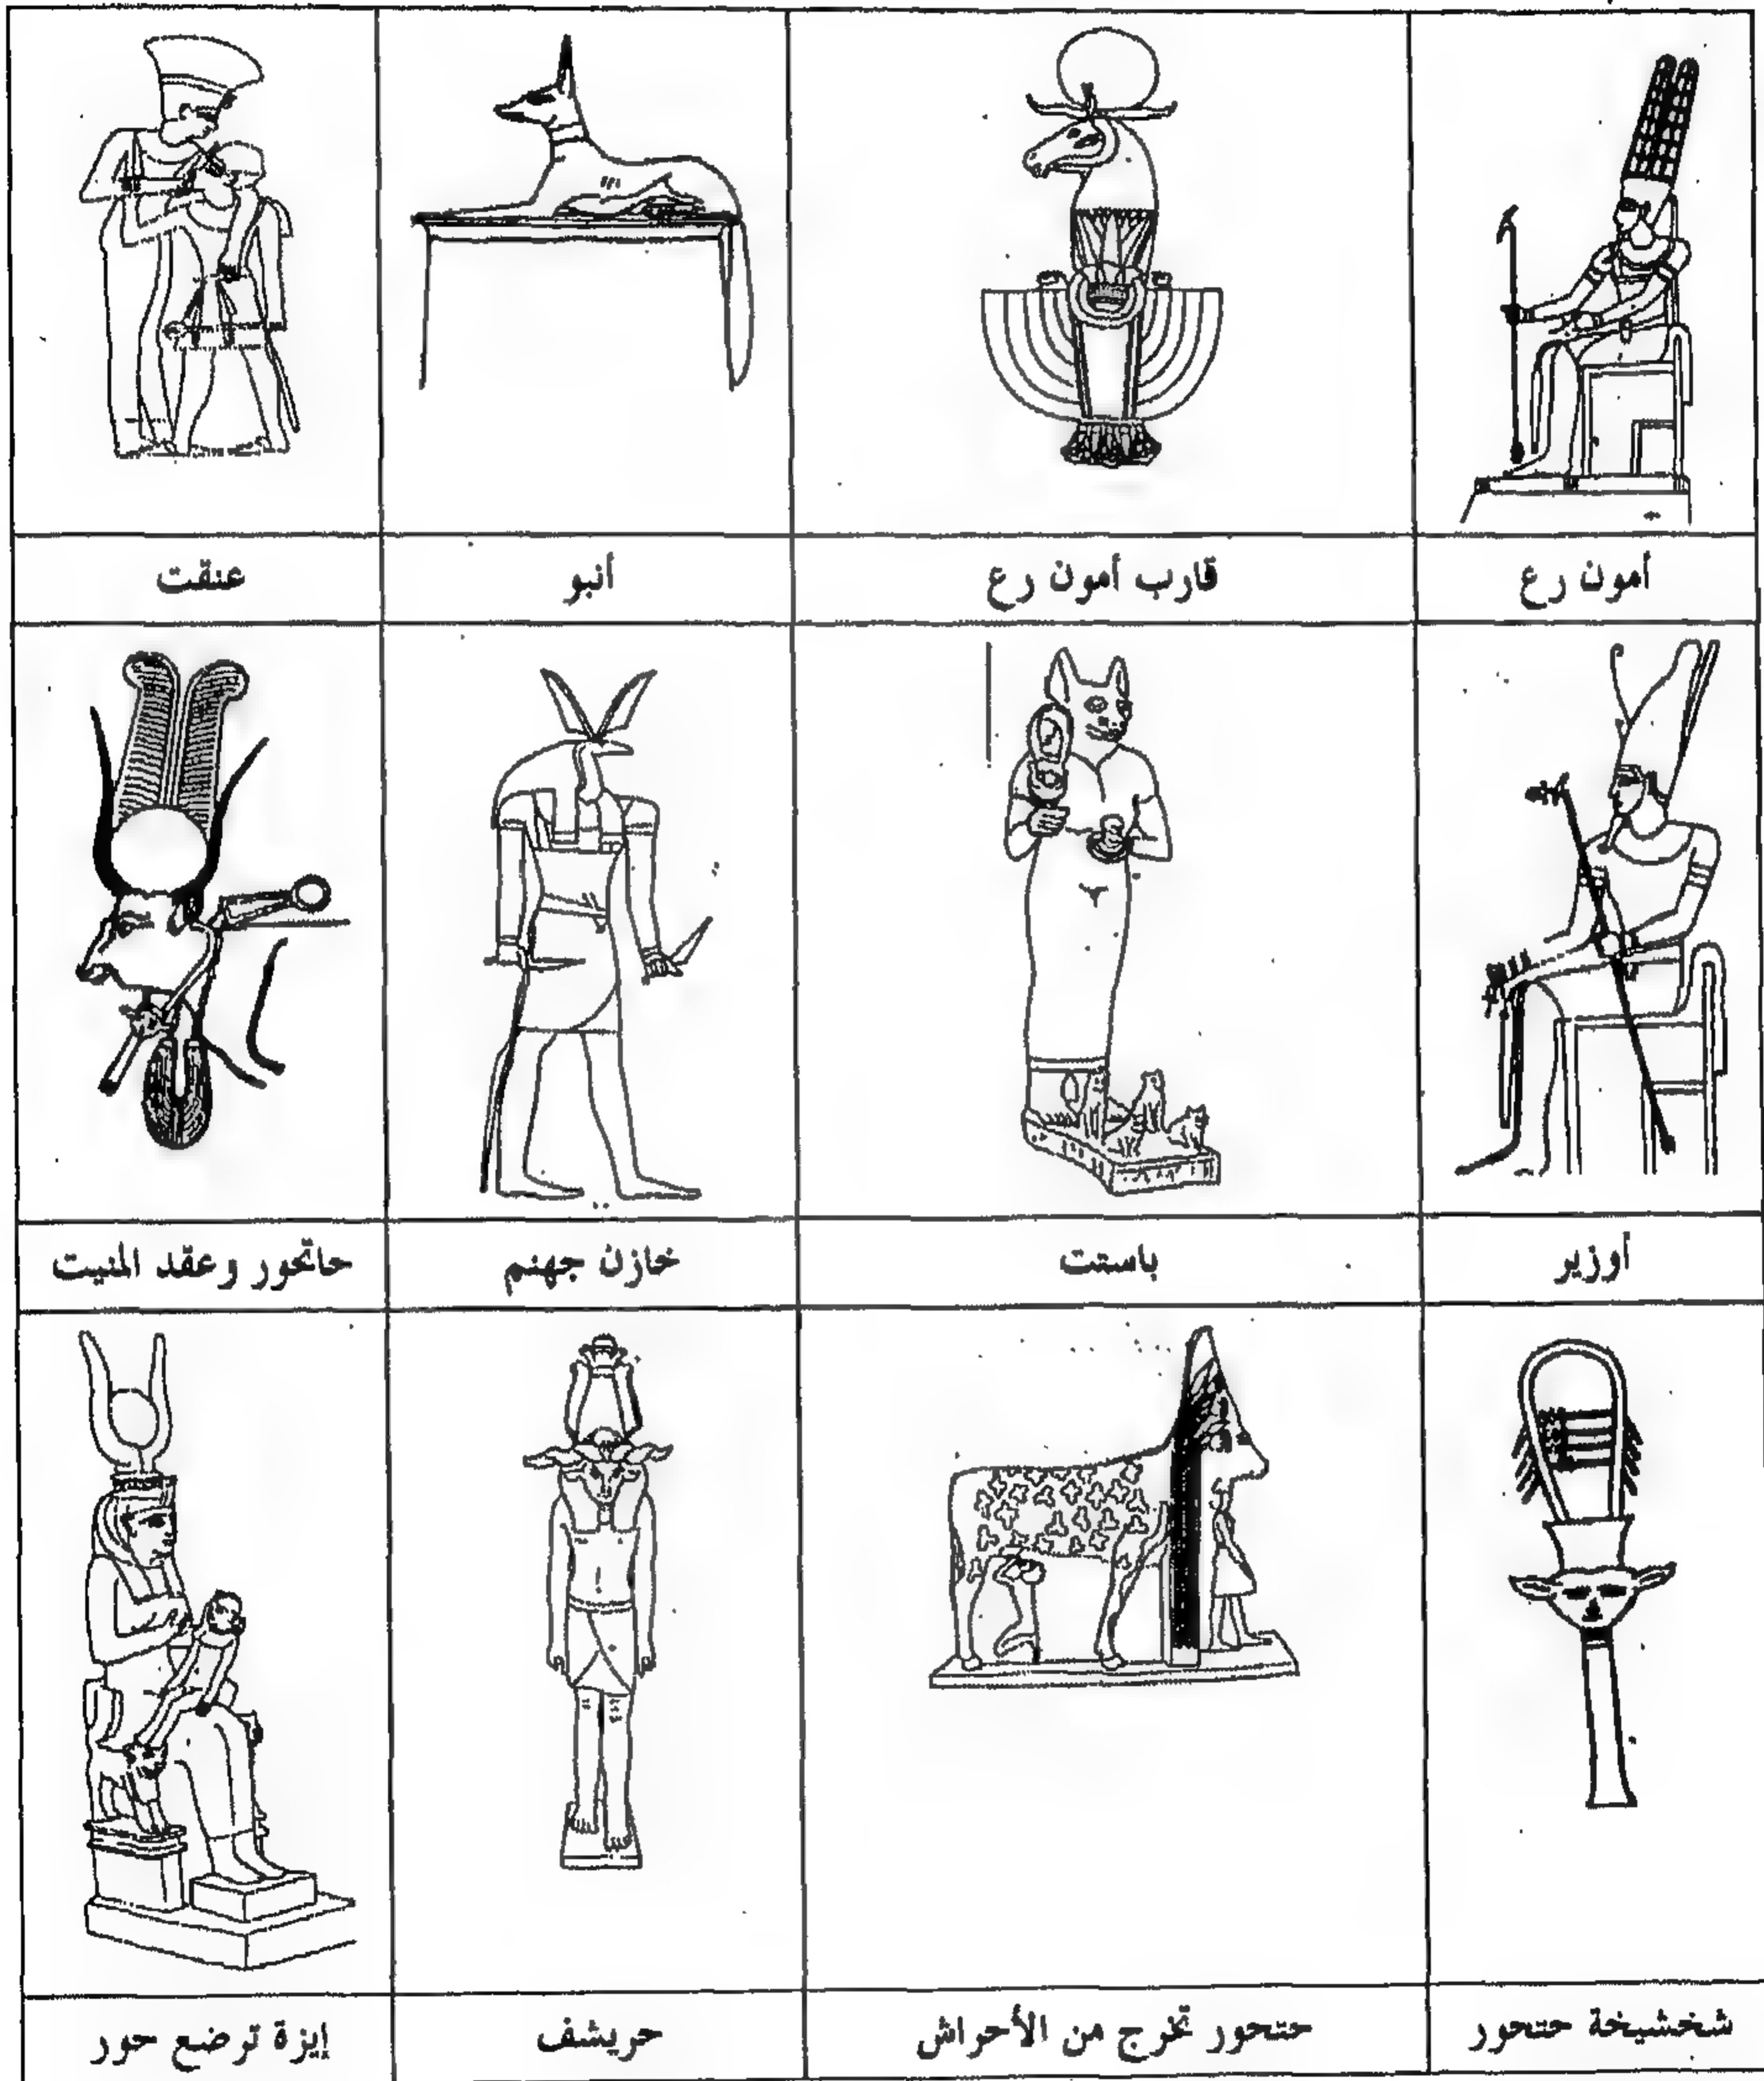 أمون رع
قارب أمون رع
أنبو
عنقت
أوزير
باستت
خازن جهنم
حاتحور وعقد المنيت
شخشيخة حتحور
حتحور تخرج من الأحراش
حريشف
إيزة ترضع حور